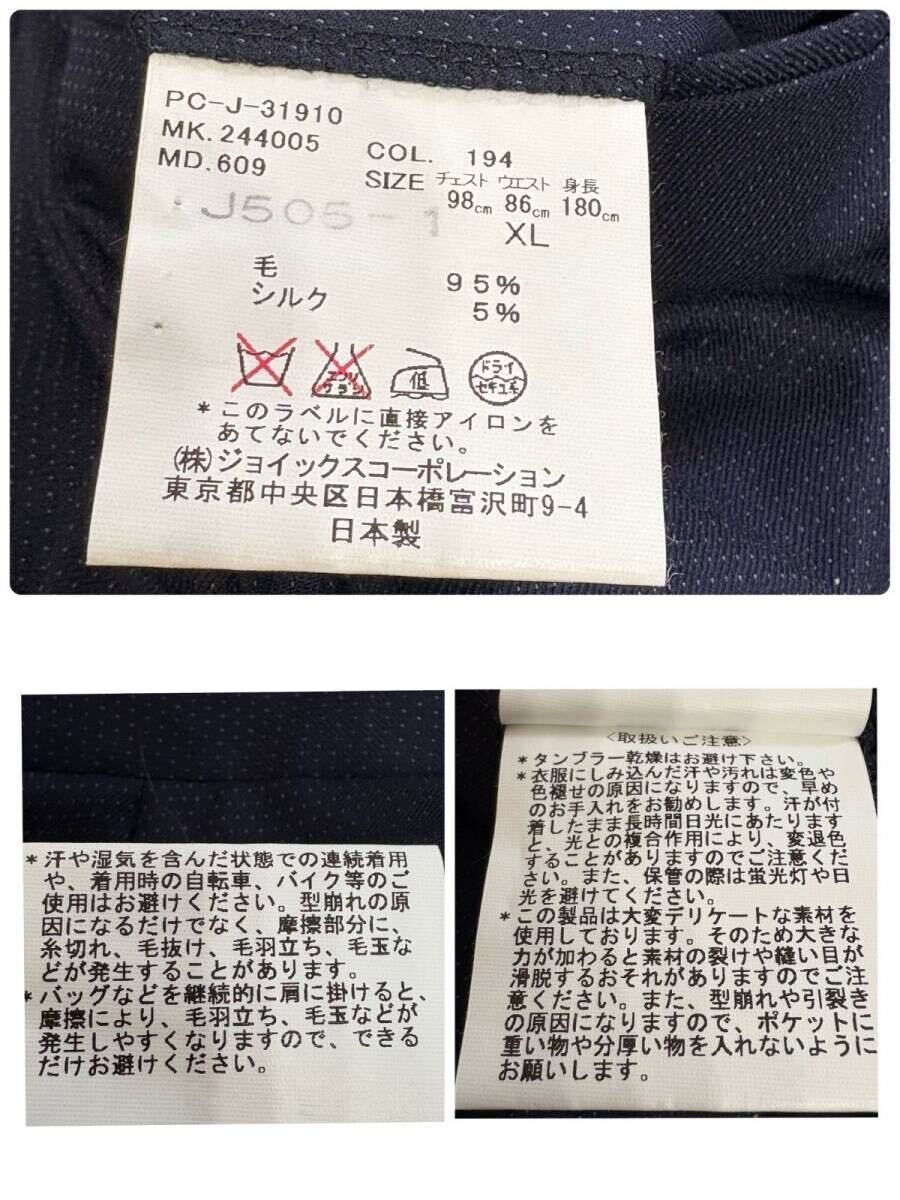 PC-J-31910
MK.244005
MD.609
COL. 194
SIZE チェスト ウエスト 身長
98cm 86cm 180cm
XL
J505-1
毛 95%
シルク 5%
エンソ
サラシ
低
ドライ
セキユキ
*このラベルに直接アイロンを
あてないでください。
(株)ジョイックスコーポレーション
東京都中央区日本橋富沢町9-4
日本製
*汗や湿気を含んだ状態での連続着用
や、着用時の自転車、バイク等のご
使用はお避けください。型崩れの原
因になるだけでなく、摩擦部分に、
糸切れ、毛抜け、毛羽立ち、毛玉な
どが発生することがあります。
*バッグなどを継続的に肩に掛けると、
摩擦により、毛羽立ち、毛玉などが
発生しやすくなりますので、できる
だけお避けください。
〈取扱いご注意〉
*タンブラー乾燥はお避け下さい。
*衣服にしみ込んだ汗や汚れは変色や
色褪せの原因になりますので、早め
のお手入れをお勧めします。汗が付
着したまま長時間日光にあたります
と、光との複合作用により、変退色
することがありますのでご注意くだ
さい。また、保管の際は蛍光灯や日
光を避けてください。
*この製品は大変デリケートな素材を
使用しております。そのため大きな
力が加わると素材の裂けや縫い目が
滑脱するおそれがありますのでご注
意ください。また、型崩れや引裂き
の原因になりますので、ポケットに
重い物や分厚い物を入れないように
お願いします。